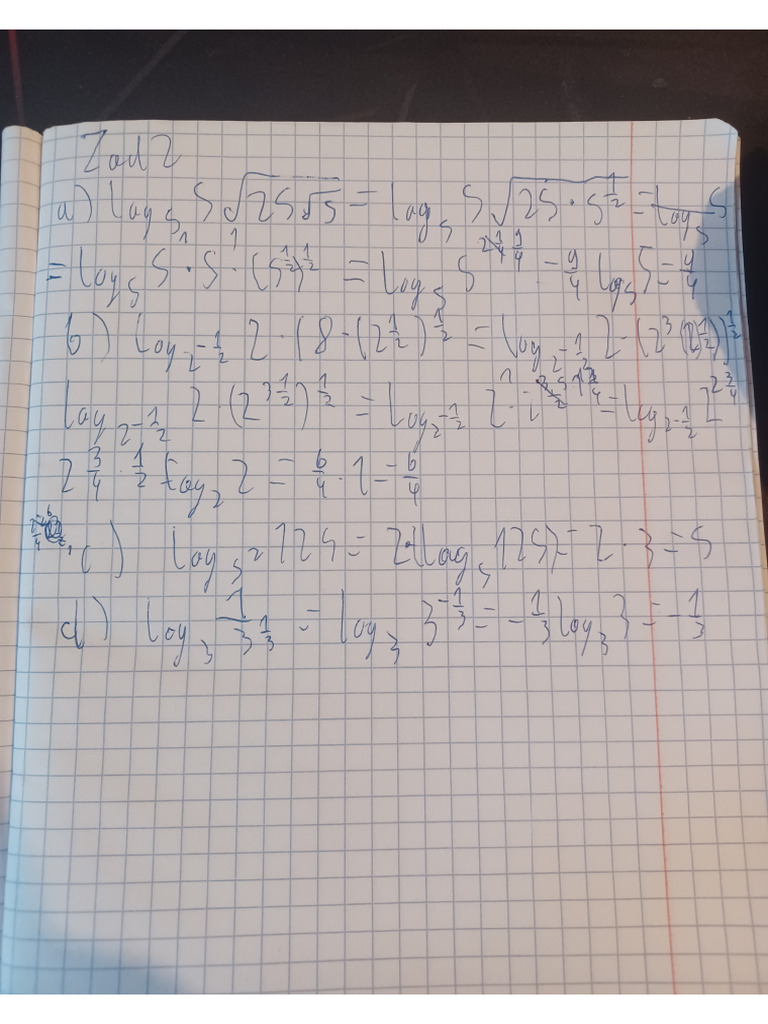 Zad 2
a) log₅ 5√(25√5) = log₅ 5√(25 · 5^(1/2)) = log₅ 5
= log₅ 5¹ · 5¹ · (5^(1/2))^(1/2) = log₅ 5^(2 1/4) = 9/4 log₅ 5 = 9/4
b) log_(2^(-1/2)) 2 · (8 · (2^(1/2))^(1/2) = log_(2^(-1/2)) 2 · (2³ (2^(1/2)))^(1/2)
log_(2^(-1/2)) 2 · (2^(3 1/2))^(1/2) = log_(2^(-1/2)) 2¹ · 2^(1 3/4) = log_(2^(-1/2)) 2^(2 3/4)
2 3/4 · 1/2 log₂ 2 = 6/4 · 1 = 6/4
c) log_(5²) 125 = 2 · (log₅ 125) = 2 · 3 = 5
d) log₃ 1/3^(1/3) = log₃ 3^(-1/3) = -1/3 log₃ 3 = -1/3